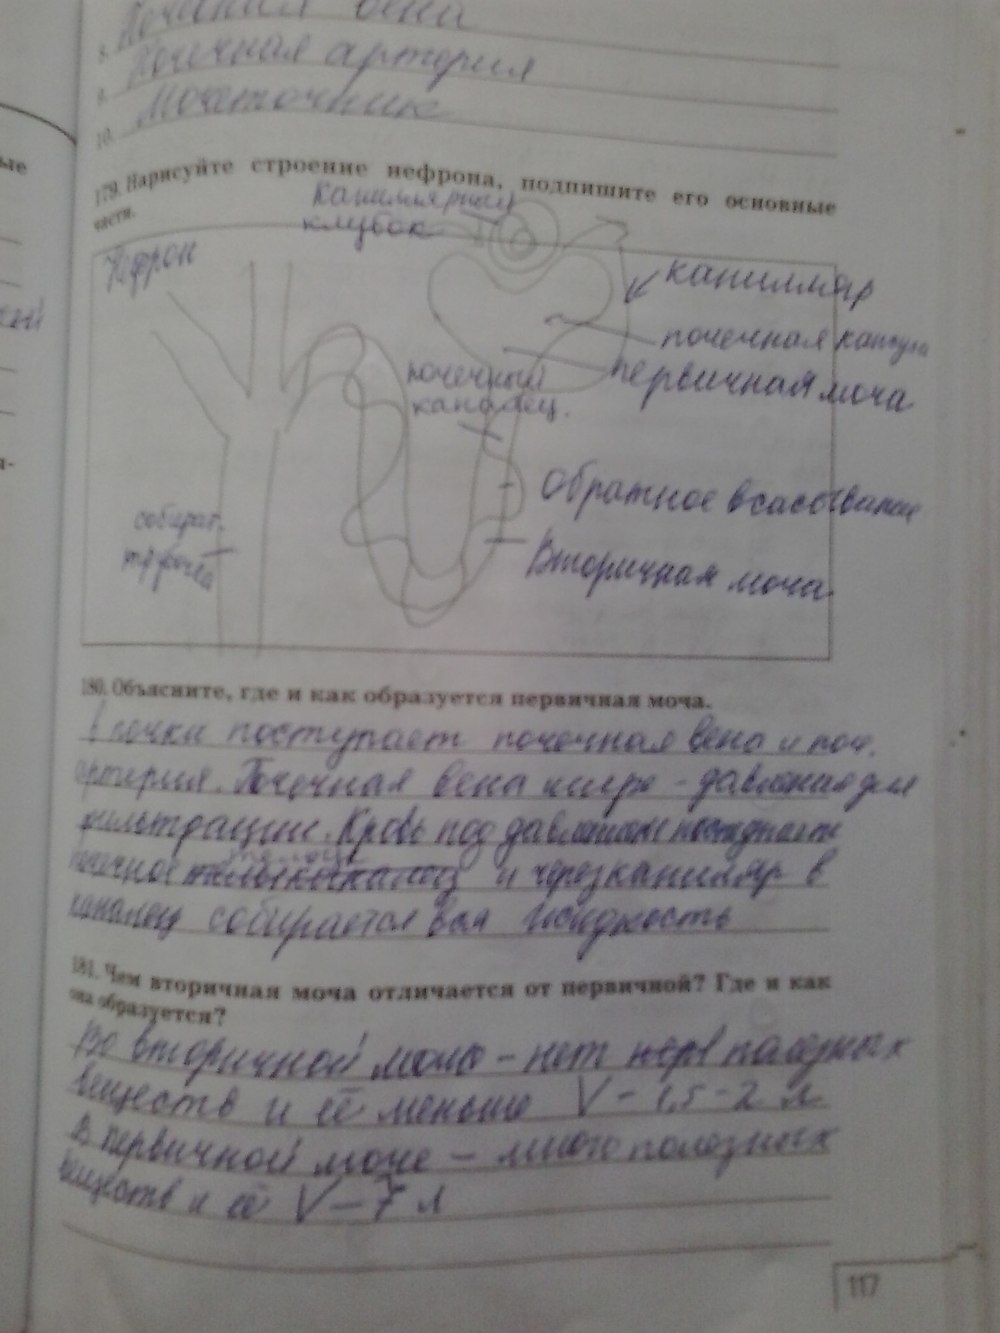 Почечная вена
9. Почечная артерия
10. Мочеточник
179. Нарисуйте строение нефрона, подпишите его основные
части.
капиллярный
клубок
Нефрон
капилляр
почечная капсула
первичная моча
почечный
каналец.
Обратное всасывание
собират.
трубка
Вторичная моча
180. Объясните, где и как образуется первичная моча.
почки поступает почечная вена и поч.
артерия. Почечная вена шире - давления для
фильтрации. Кровь под давлением поступает
почечное и через капилляр в
каналец собирается вся жидкость
181. Чем вторичная моча отличается от первичной? Где и как
она образуется?
Во вторичной моче - нет полезных
веществ и её меньше V - 1,5-2 л
В первичной моче - много полезных
веществ и её V - 7 л
117
ые